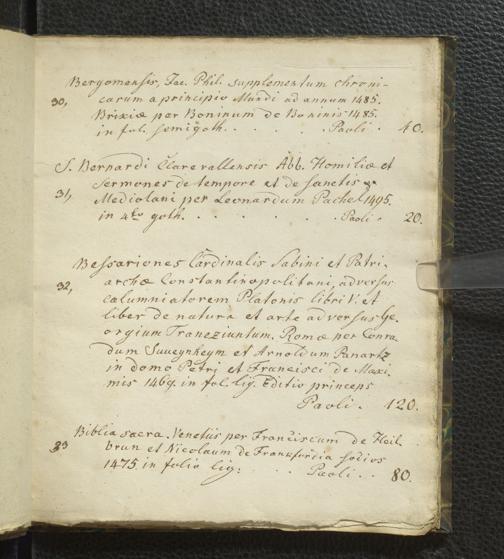 Bergomensis, Jac. Phil. supplementum chroni-
30, carum a principio Mundi ad annum 1485.
Brixiæ per Boninum de Boninis 1485.
in fol. semigoth. . . . . Paoli . 40.
S. Bernardi Clarevallensis Abb. Homiliæ et
31, Sermones de tempore et de sanctis
Mediolani per Leonardum Pachel 1495.
in 4to goth. . . . . Paoli . 20.
Bessariones Cardinalis Sabini et Patri-
32, archæ Constantinopolitani, adversus
calumniatorem Platonis libri V. et
liber de natura et arte adversus Ge-
orgium Trapeziuntum. Romæ per Conra
dum Suueynheym et Arnoldum Panartz
in domo Petri et Francisci de Maxi-
mis 1469. in fol. lig. Editio princeps
Paoli . 120.
Biblia sacra. Venetiis per Franciscum de Heil.
33 brun et Nicolaum de Frankfordia socios
1475. in folio lig: . . . Paoli . . 80.